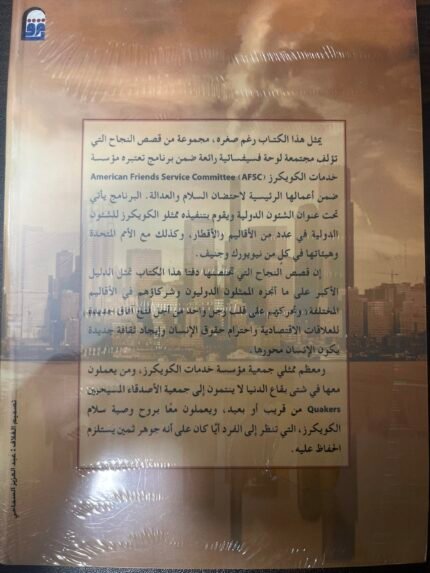 يمثل هذا الكتاب رغم صغره، مجموعة من قصص النجاح التي
تؤلف مجتمعة لوحة فسيفسائية رائعة ضمن برنامج تعتبره مؤسسة
خدمات الكويكرز (American Friends Service Committee (AFSC
ضمن أعمالها الرئيسية لاحتضان السلام والعدالة. البرنامج يأتي
تحت عنوان الشئون الدولية ويقوم بتنفيذه ممثلو الكويكرز للشئون
الدولية في عدد من الأقاليم والأقطار، وكذلك مع الأمم المتحدة
وهيئاتها في كل من نيويورك وجنيف.
إن قصص النجاح التي تحتضنها دفتا هذا الكتاب تمثل الدليل
الأكبر على ما أنجزه الممثلون الدوليون وشركاؤهم في الأقاليم
المختلفة، وتحركهم على قلب رجل واحد من أجل فتح آفاق جديدة
للعلاقات الاقتصادية واحترام حقوق الإنسان وإيجاد ثقافة جديدة
يكون الإنسان محورها.
ومعظم ممثلي جمعية مؤسسة خدمات الكويكرز، ومن يعملون
معها في شتى بقاع الدنيا لا ينتمون إلى جمعية الأصدقاء المسيحيين
Quakers من قريب أو بعيد، ويعملون معًا بروح وصية سلام
الكويكرز، التي تنظر إلى الفرد أيًا كان على أنه جوهر ثمين يستلزم
الحفاظ عليه.
تصميم الغلاف : عبد العزيز السماحي